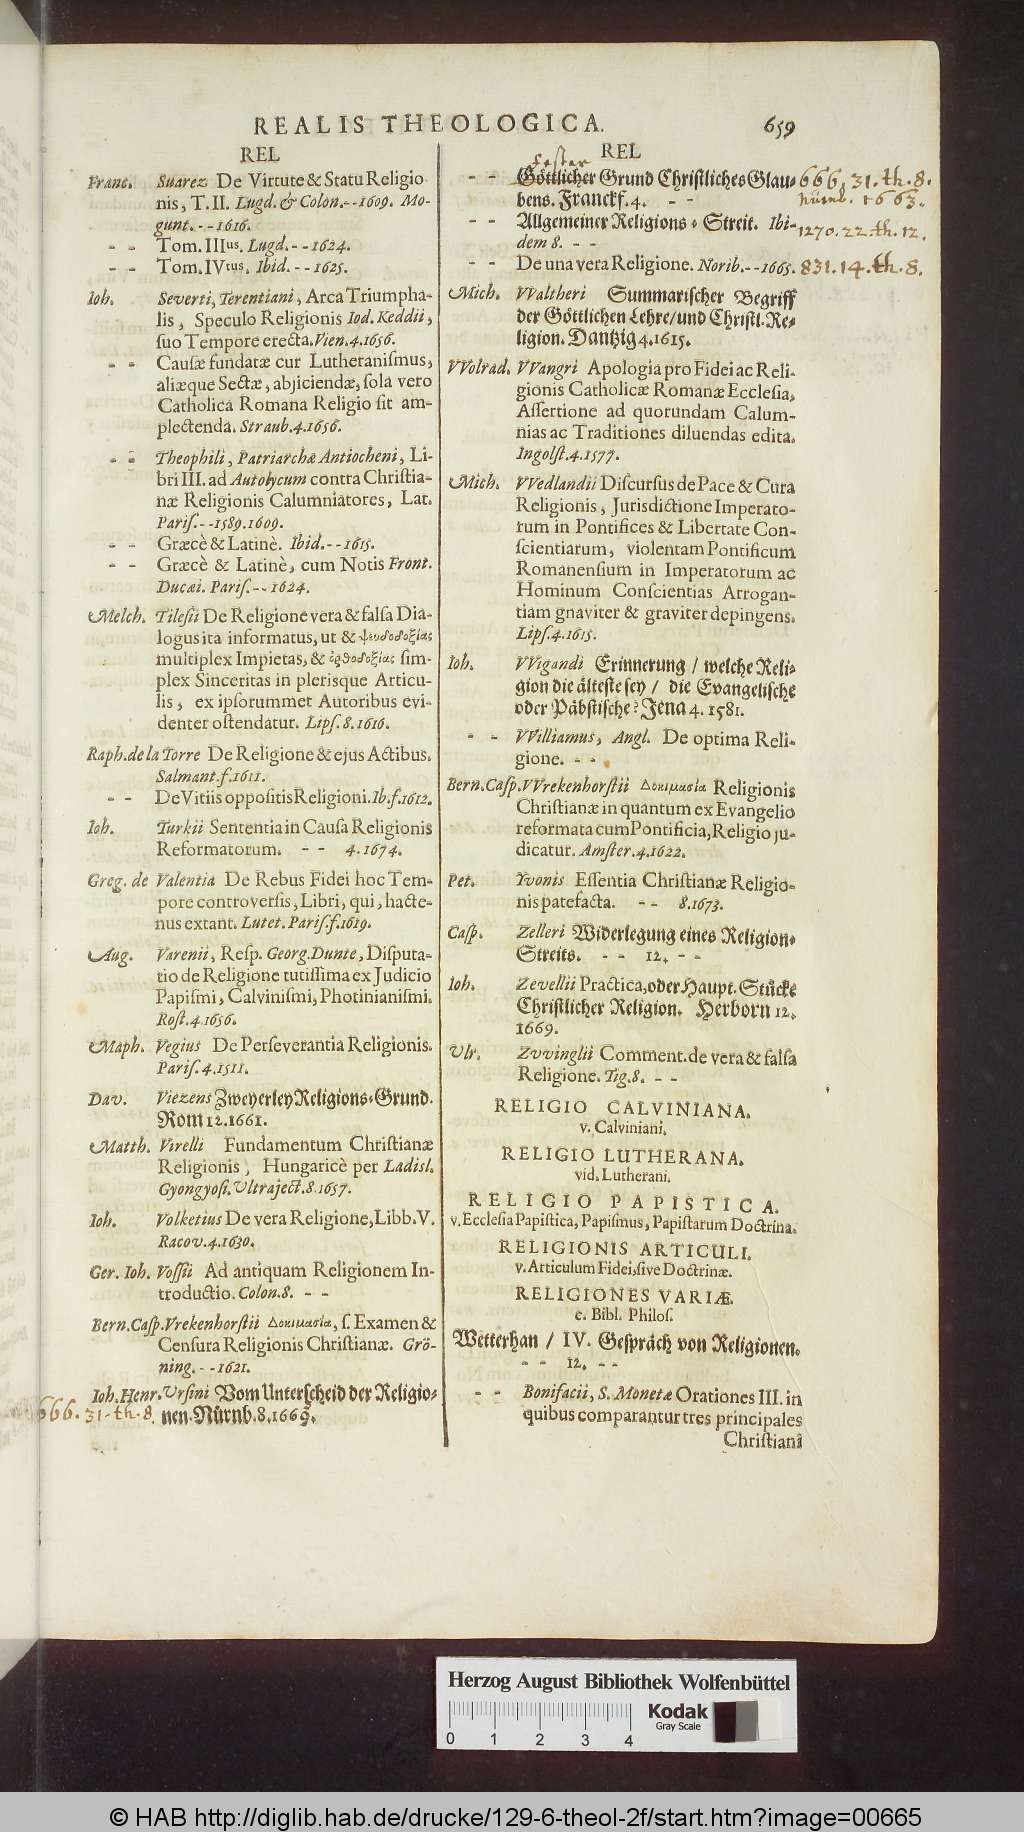 REALIS THEOLOGICA. 659
REL
Franc. Suarez De Virtute & Statu Religio-
nis, T. II. Lugd. & Colon. - - 1609. Mo-
gunt. - - 1616.
- - Tom. IIIus. Lugd. - - 1624.
- - Tom. IVtus. Ibid. - - 1625.
Ioh. Severti, Terentiani, Arca Triumpha-
lis, Speculo Religionis Iod. Keddii,
ſuo Tempore erecta. Vien. 4. 1656.
- - Cauſæ fundatæ cur Lutheraniſmus,
aliæque Sectæ, abjiciendæ, ſola vero
Catholica Romana Religio ſit am-
plectenda. Straub. 4. 1656.
- - Theophili, Patriarchæ Antiocheni, Li-
bri III. ad Autolycum contra Chriſtia-
næ Religionis Calumniatores, Lat.
Pariſ. - - 1589. 1609.
- - Græcè & Latinè. Ibid. - - 1615.
- - Græcè & Latinè, cum Notis Front.
Ducæi. Pariſ. - - 1624.
Melch. Tileſii De Religione vera & falſa Dia-
logus ita informatus, ut & ψευδοδοξίας
multiplex Impietas, & ὀρθοδοξίας ſim-
plex Sinceritas in plerisque Articu-
lis, ex ipſorummet Autoribus evi-
denter oſtendatur. Lipſ. 8. 1616.
Raph. de la Torre De Religione & ejus Actibus.
Salmant. f. 1611.
- - De Vitiis oppoſitis Religioni. Ib. f. 1612.
Ioh. Turkii Sententia in Cauſa Religionis
Reformatorum. - - 4. 1674.
Greg. de Valentia De Rebus Fidei hoc Tem-
pore controverſis, Libri, qui, hacte-
nus extant. Lutet. Pariſ. f. 1619.
Aug. Varenii, Reſp. Georg. Dunte, Diſputa-
tio de Religione tutiſſima ex Judicio
Papiſmi, Calviniſmi, Photinianiſmi.
Roſt. 4. 1656.
Maph. Vegius De Perſeverantia Religionis.
Pariſ. 4. 1511.
Dav. Viezens Zweyerley Religions-Grund.
Rom 12. 1661.
Matth. Virelli Fundamentum Chriſtianæ
Religionis, Hungaricè per Ladisl.
Gyongyoſi. Ultraject. 8. 1657.
Ioh. Volketius De vera Religione, Libb. V.
Racov. 4. 1630.
Ger. Ioh. Voſſii Ad antiquam Religionem In-
troductio. Colon. 8. - -
Bern. Caſp. Vrekenhorſtii Δοκιμασία, ſ. Examen &
Cenſura Religionis Chriſtianæ. Grö-
ning. - - 1621.
Ioh. Henr. Urſini Vom Unterſcheid der Religio-
666. 31. th. 8. nen. Nürnb. 8. 1663.
REL
fester
- - Göttlicher Grund Chriſtliches Glau- 666. 31. th. 8.
bens. Franckf. 4. - - Nürnb. 1663.
- - Allgemeiner Religions-Streit. Ibi- 1270. 22. th. 12.
dem 8. - -
- - De una vera Religione. Norib. - - 1665. 831. 14. th. 8.
Mich. VValtheri Summariſcher Begriff
der Göttlichen Lehre / und Chriſtl. Re-
ligion. Dantzig 4. 1615.
VVolrad. VVangri Apologia pro Fidei ac Reli-
gionis Catholicæ Romanæ Eccleſia,
Aſſertione ad quorundam Calum-
nias ac Traditiones diluendas edita.
Ingolſt. 4. 1577.
Mich. VVedlandii Diſcurſus de Pace & Cura
Religionis, Jurisdictione Imperato-
rum in Pontifices & Libertate Con-
ſcientiarum, violentam Pontificum
Romanenſium in Imperatorum ac
Hominum Conſcientias Arrogan-
tiam gnaviter & graviter depingens.
Lipſ. 4. 1615.
Ioh. VVigandi Erinnerung / welche Reli-
gion die älteſte ſey / die Evangeliſche
oder Päbſtiſche? Jena 4. 1581.
- - VVilliamus, Angl. De optima Reli-
gione. - -
Bern. Caſp. VVrekenhorſtii Δοκιμασία Religionis
Chriſtianæ in quantum ex Evangelio
reformata cum Pontificia, Religio ju-
dicatur. Amſter. 4. 1622.
Pet. Yvonis Eſſentia Chriſtianæ Religio-
nis patefacta. - - 8. 1673.
Caſp. Zelleri Widerlegung eines Religion-
Streits. - - 12. - -
Ioh. Zevellii Practica, oder Haupt-Stücke
Chriſtlicher Religion. Herborn 12.
1669.
Ulr. Zvvinglii Comment. de vera & falſa
Religione. Tig. 8. - -
RELIGIO CALVINIANA.
v. Calviniani.
RELIGIO LUTHERANA.
vid. Lutherani.
RELIGIO PAPISTICA.
v. Eccleſia Papiſtica, Papiſmus, Papiſtarum Doctrina.
RELIGIONIS ARTICULI.
v. Articulum Fidei, ſive Doctrinæ.
RELIGIONES VARIÆ.
e. Bibl. Philoſ.
Wetterhan / IV. Geſpräch von Religionen.
- - 12. - -
- - Bonifacii, S. Monetæ Orationes III. in
quibus comparantur tres principales
Chriſtiani
Herzog August Bibliothek Wolfenbüttel
Kodak
Gray Scale
0 1 2 3 4
© HAB http://diglib.hab.de/drucke/129-6-theol-2f/start.htm?image=00665